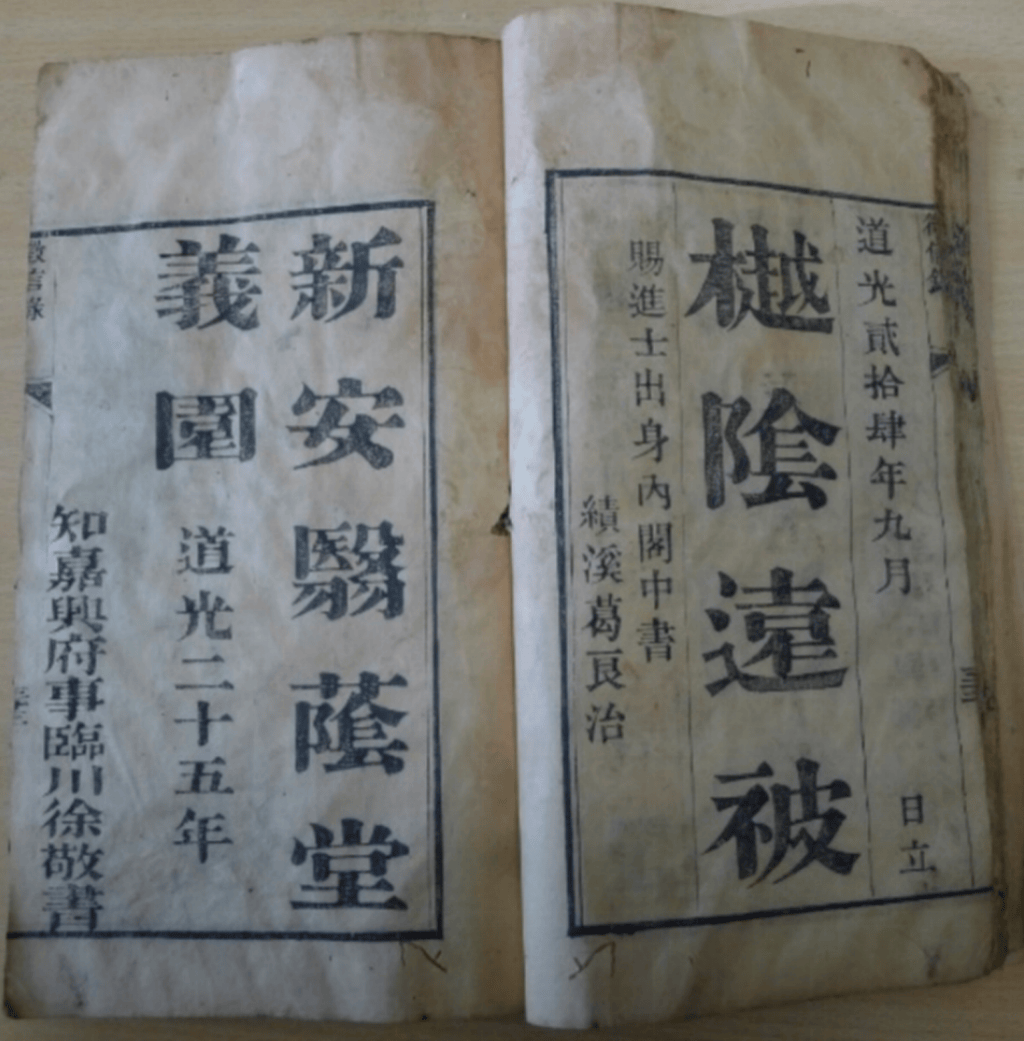 道光貳拾肆年九月
日立
樾陰遠被
賜進士出身內閣中書
績溪葛良治
新安翳蔭堂
義園
道光二十五年
知嘉興府事臨川徐敬書
徵信錄